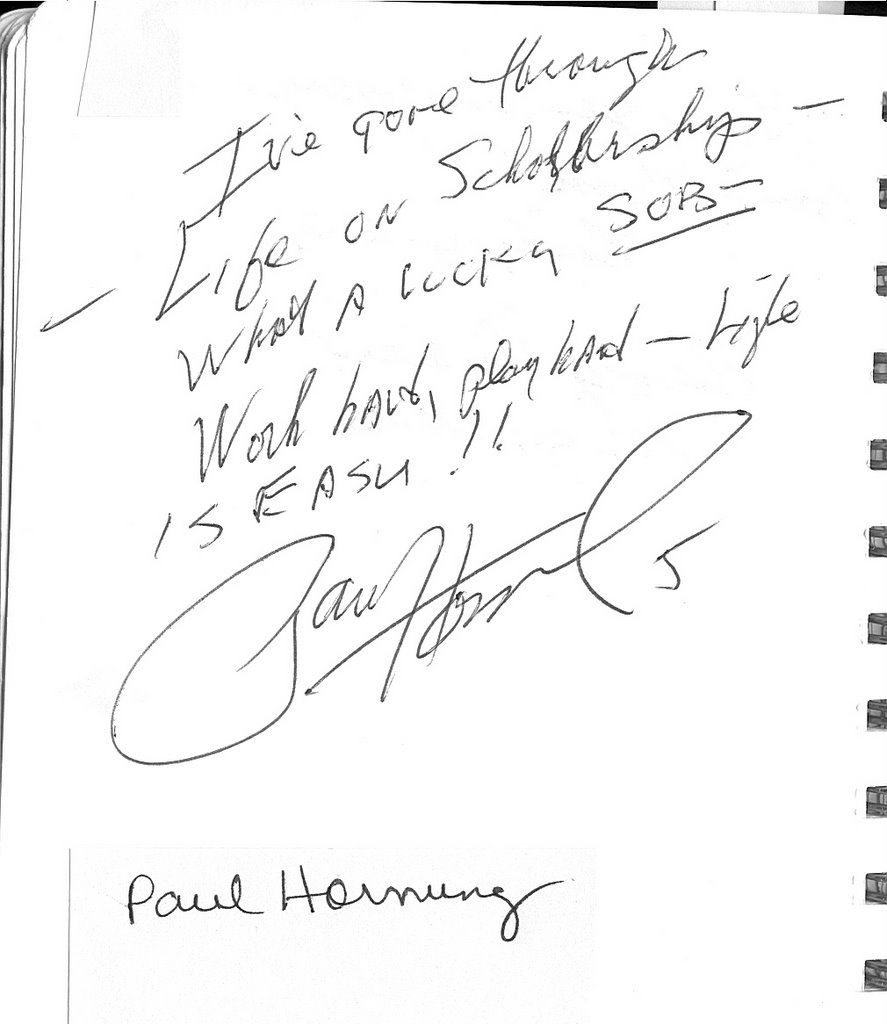 I've gone through
– Life on Scholarship –
What A lucky SOB –
Work hard, play hard – Life
IS EASY!!
Paul Hornung 5
Paul Hornung